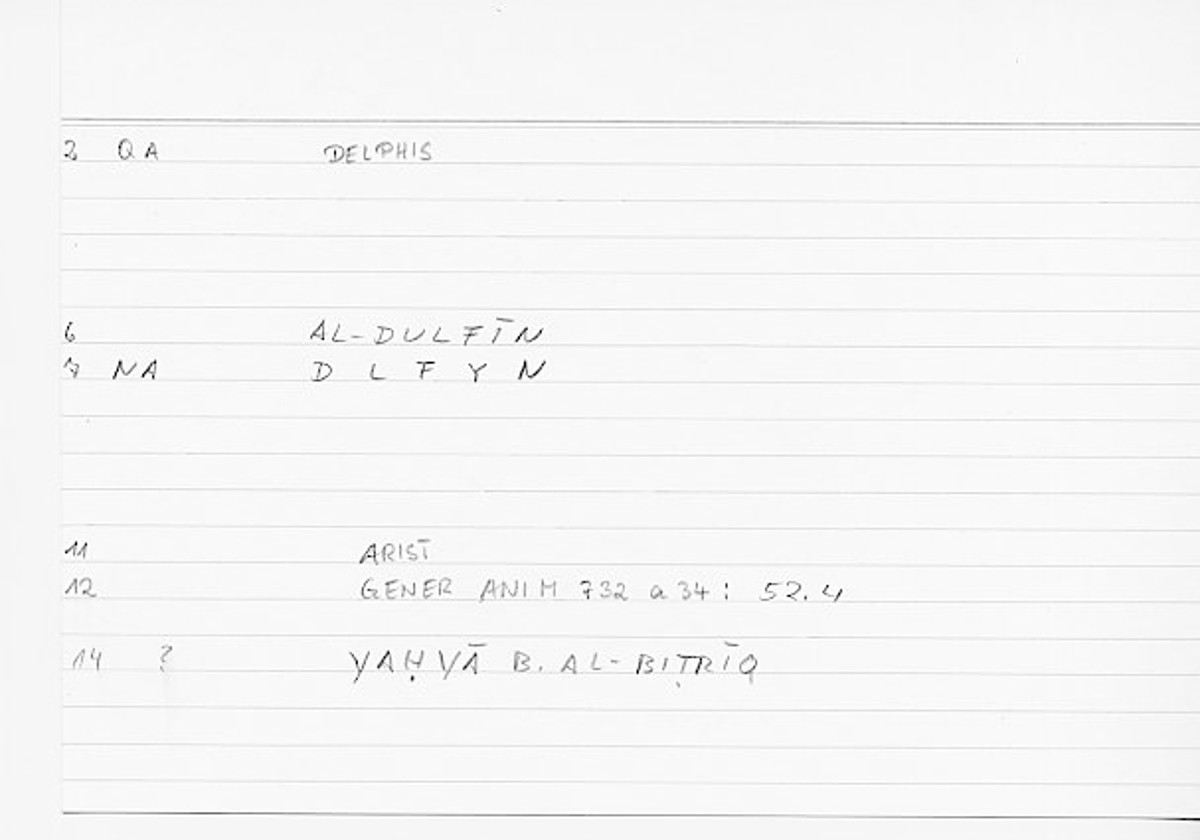 2 QA DELPHIS
6 AL-DULFĪN
7 NA D L F Y N
11 ARIST
12 GENER ANIM 732 a 34: 52.4
14 ? YAḤYĀ B. AL-BIṬRĪQ